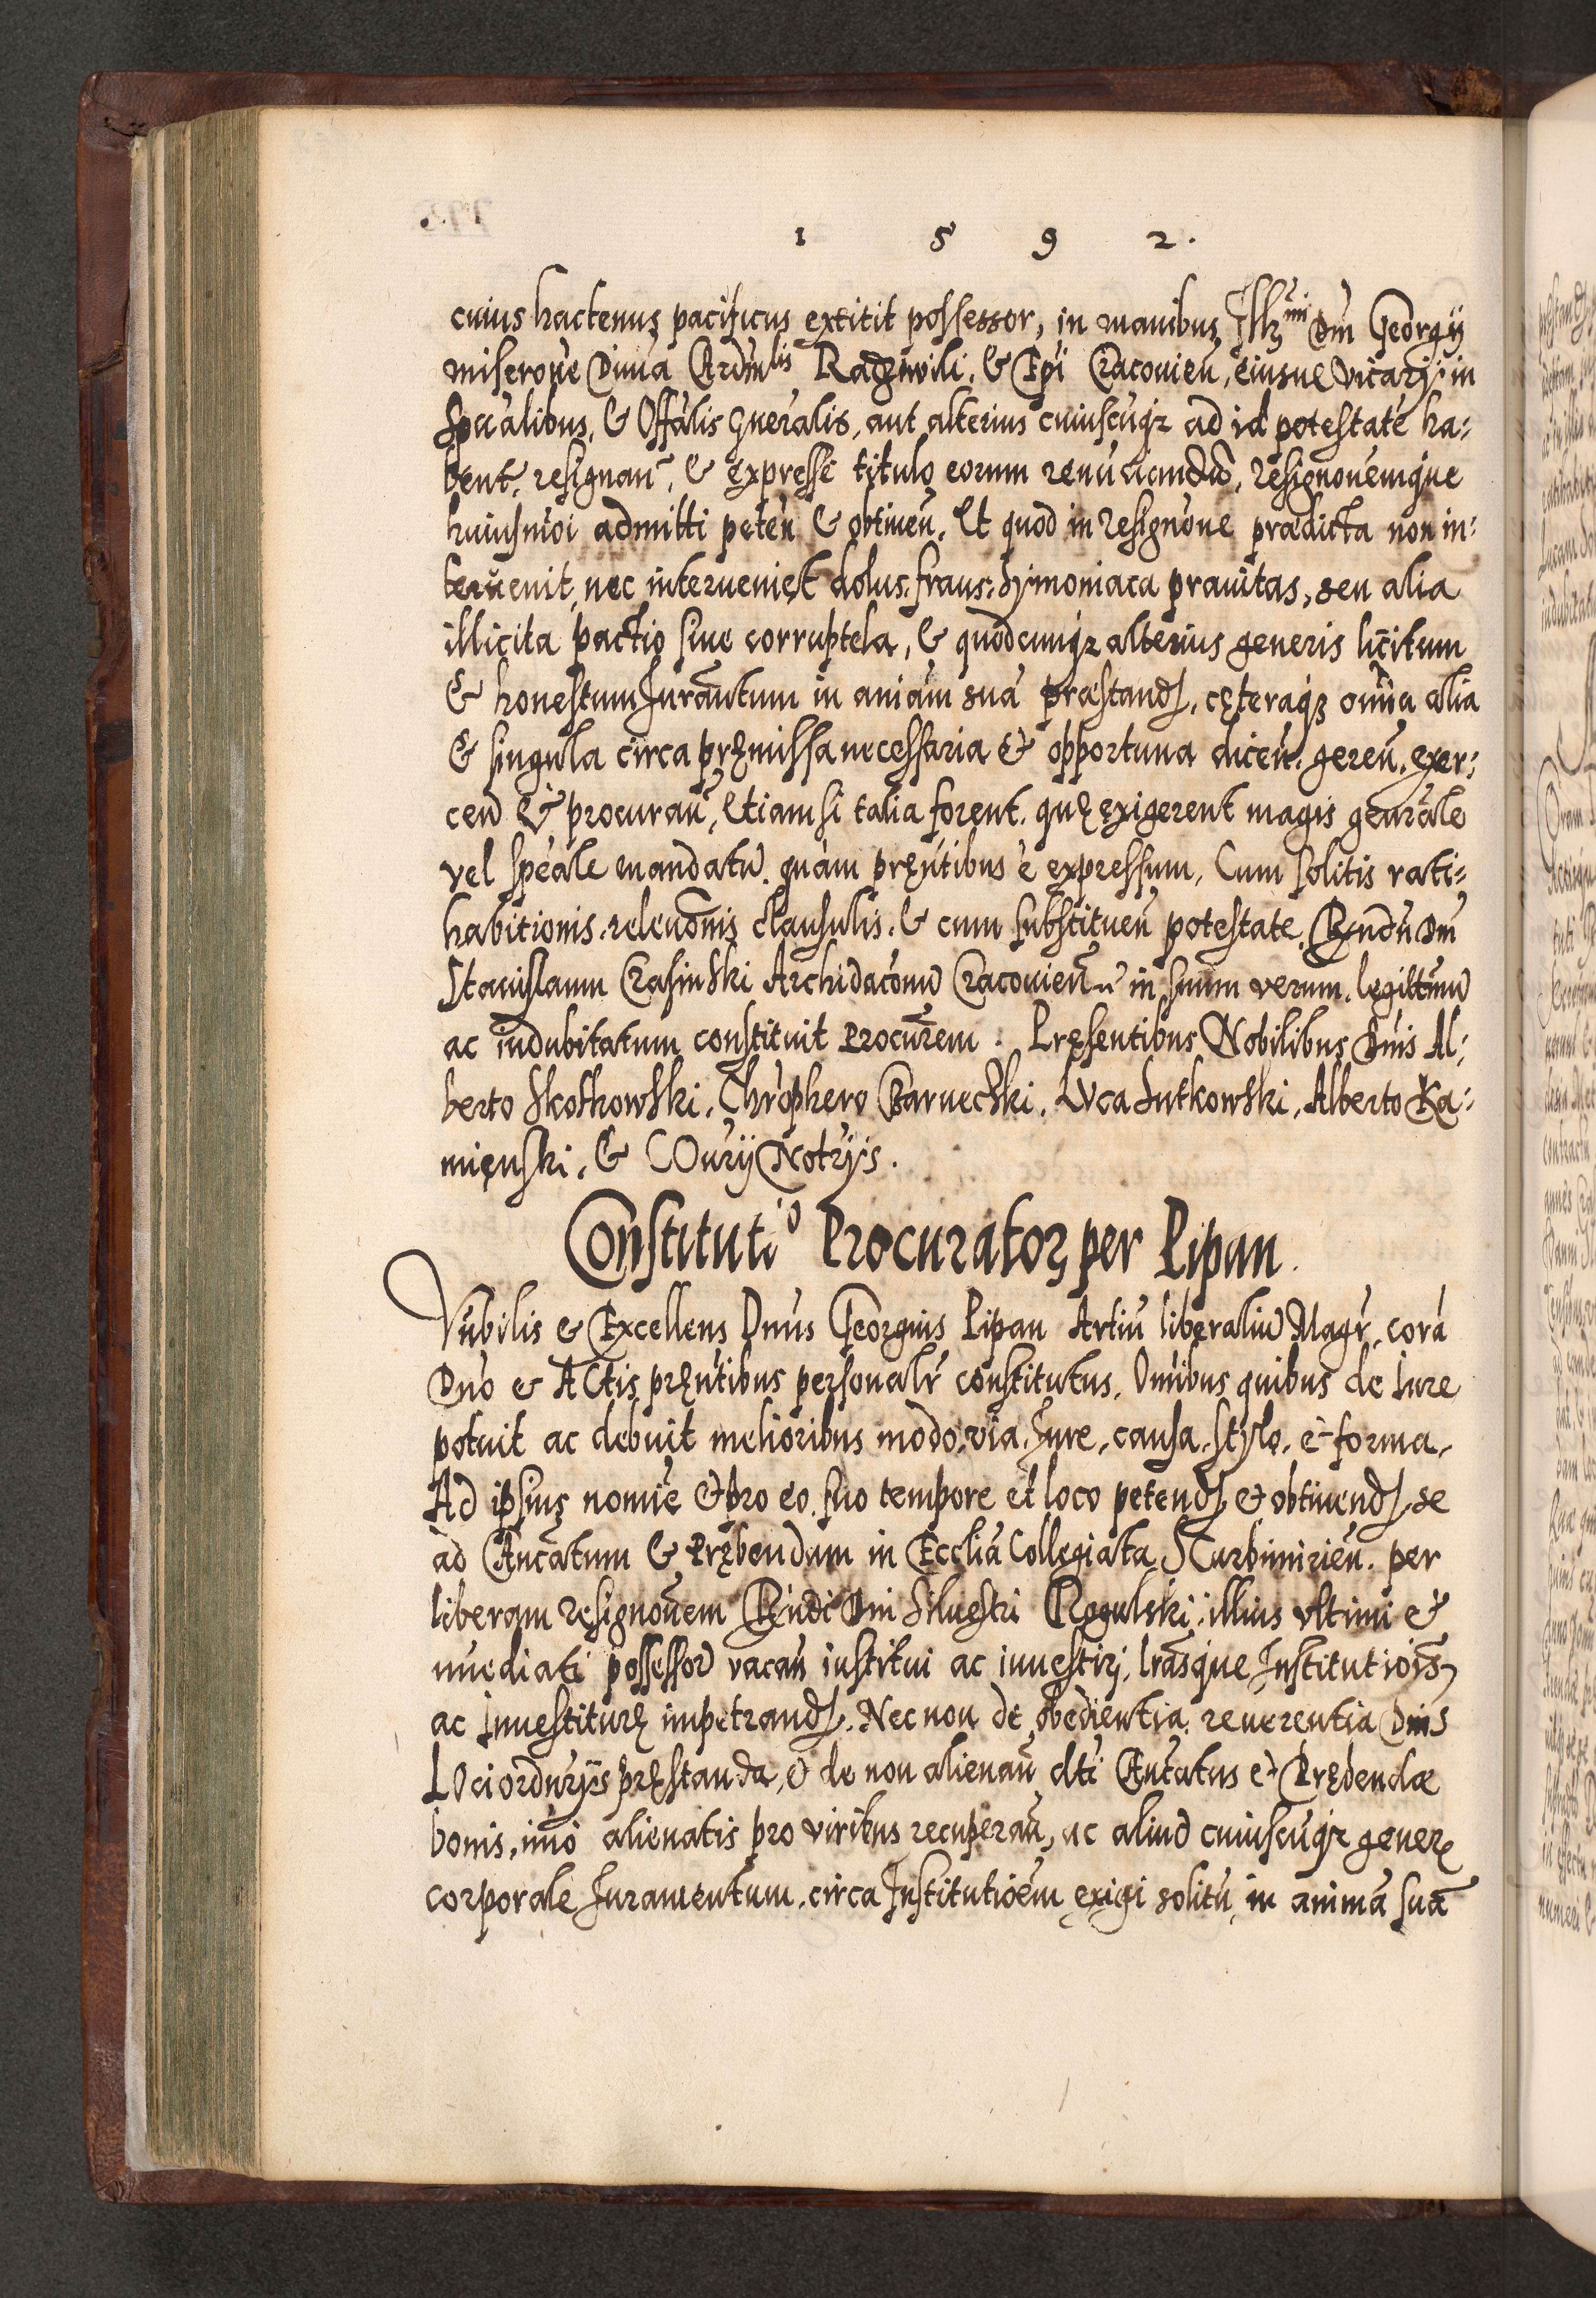 1592.
cuius hactenus pacificus extitit possessor, in manibus Illmi Dni Georgij
miserone Diuina Cardinlis Radziwili, & Epi Cracouien, eiusue Vicarij in
Spualibus, & Offalis Gneralis, aut alterius cuiuscuqz ad id potestate ha:
bent, resignan, & expresse titulo eorum renuciandu, resignonemque
huiusmoi admitti peten & obtinen, Et quod in resignone praedicta non in:
teruenit, nec interueniet dolus. fraus. symoniaca prauitas, seu alia
illicita pactio siue corruptela, & quodcumqz alterius generis licitum
& honestum Jurantum in aniam sua praestand, cęteraqz omia alia
& singula circa pręmissa necessaria & opportuna dicen. geren. exer:
cen & procuran, Etiamsi talia forent. quę exigerent magis genrale
vel speale mandatu. quam pręntibus e expressum, Cum solitis rati=
habitionis. releuonis clausulis. & cum substituen potestate. Rndu Dm
Stanislaum Crasinski Archidaconu Cracouien in suum verum. legittimu
ac indubitatum constituit Procurem. Pręsentibus Nobilibus Dnis Al:
berto Skotkowski, Chrophero Barnechki, Luca Sutkowski, Alberto Ka:
mięnski, & COurij Notrijs.
Constitutio Procurator per Pipan.
Nubilis & Excellens Dnus Georgius Pipan Artiu liberaliu Magr, cora
Dno & Actis pręntibus personalr constitutus, Omibus quibus de Iure
potuit ac debuit melioribus modo. via. Jure, causa. stylo. et forma.
Ad ipsius nomie & pro eo suo tempore et loco petend & obtinend. se
ad Cancatum & Prębendam in Ecclia Collegiata Scarbimirien. per
liberam resignonem Rndi Dni Siluestri Rogulski. illius vltimi &
imediati possessor vacan institui ac inuestiri, lrasque Institutiois
ac Inuestiturę impetrand. Nec non de obedientia. reuerentia Dnis
LOci ordnrijs pręstanda, & de non alienan dti Cancatus et Prębendae
bonis, imo alienatis pro viribus recuperan, ac aliud cuiuscuqz gener
corporale Juramentum. circa Institutioem exigi solitu in anima sua